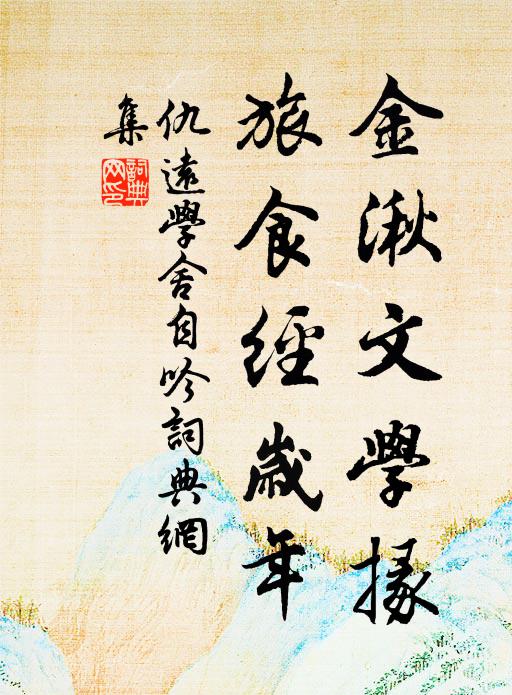 金湫文學掾
旅食經歲年
仇遠學舍自吟詞典網
集
詞典
网印